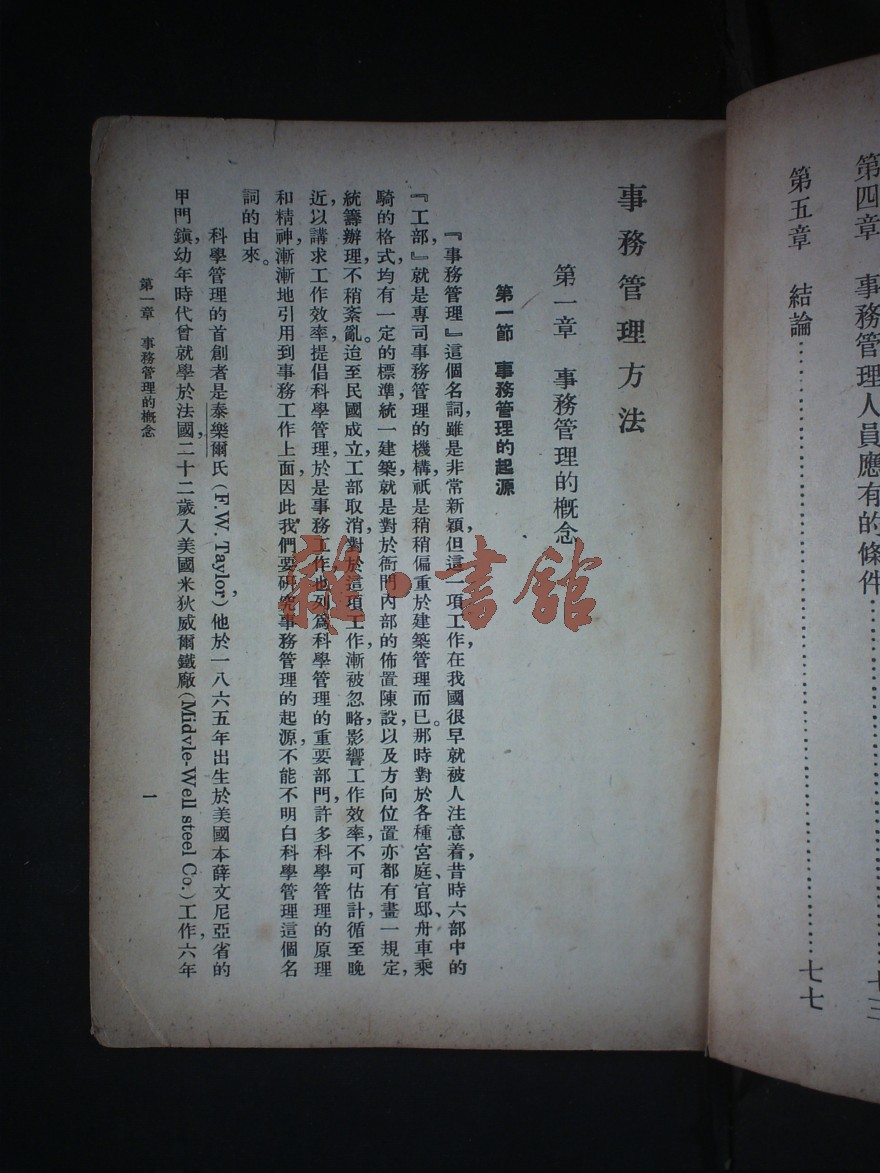 第四章　事務管理人員應有的條件……………………七三
第五章　結論……………………………………七七
事務管理方法
第一章　事務管理的概念
第一節　事務管理的起源
『事務管理』這個名詞，雖是非常新穎，但這一項工作，在我國很早就被人注意着，昔時六部中的
『工部，』就是專司事務管理的機構，祇是稍稍偏重於建築管理而已。那時對於各種宮庭、官邸、舟車乘
騎的格式，均有一定的標準，統一建築，就是對於衙門內部的佈置陳設，以及方向位置，亦都有畫一規定，
統籌辦理，不稍紊亂。迨至民國成立，工部取消，對於這項工作，漸被忽略，影響工作效率，不可估計，循至晚
近，以講求工作效率，提倡科學管理，於是事務工作也列爲科學管理的重要部門，許多科學管理的原理
和精神，漸漸地引用到事務工作上面，因此我們要研究事務管理的起源，不能不明白科學管理這個名
詞的由來。
科學管理的首創者是泰樂爾氏（F. W. Taylor），他於一八六五年出生於美國本薛文尼亞省的
甲門鎮，幼年時代曾就學於法國，二十二歲入美國米狄威爾鐵廠（Midvle-Well steel Co.）工作，六年
第一章　事務管理的概念
一
雜·書館